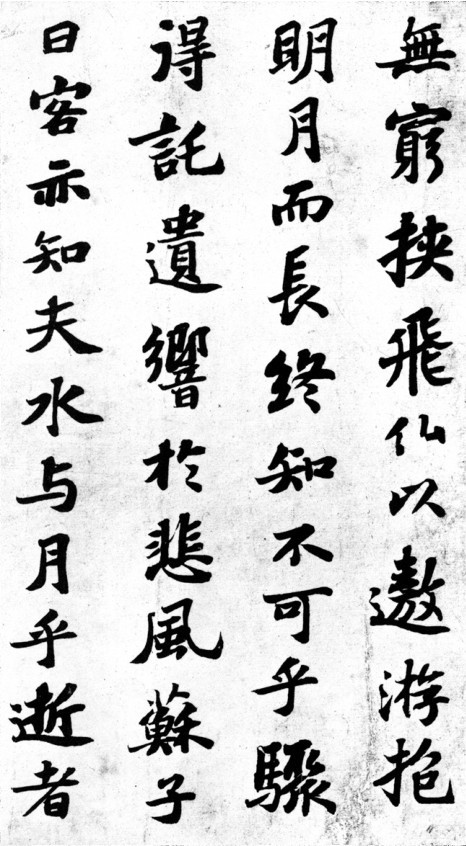 無窮挾飛仙以遨游抱
明月而長終知不可乎驟
得託遺響於悲風蘇子
曰客亦知夫水与月乎逝者